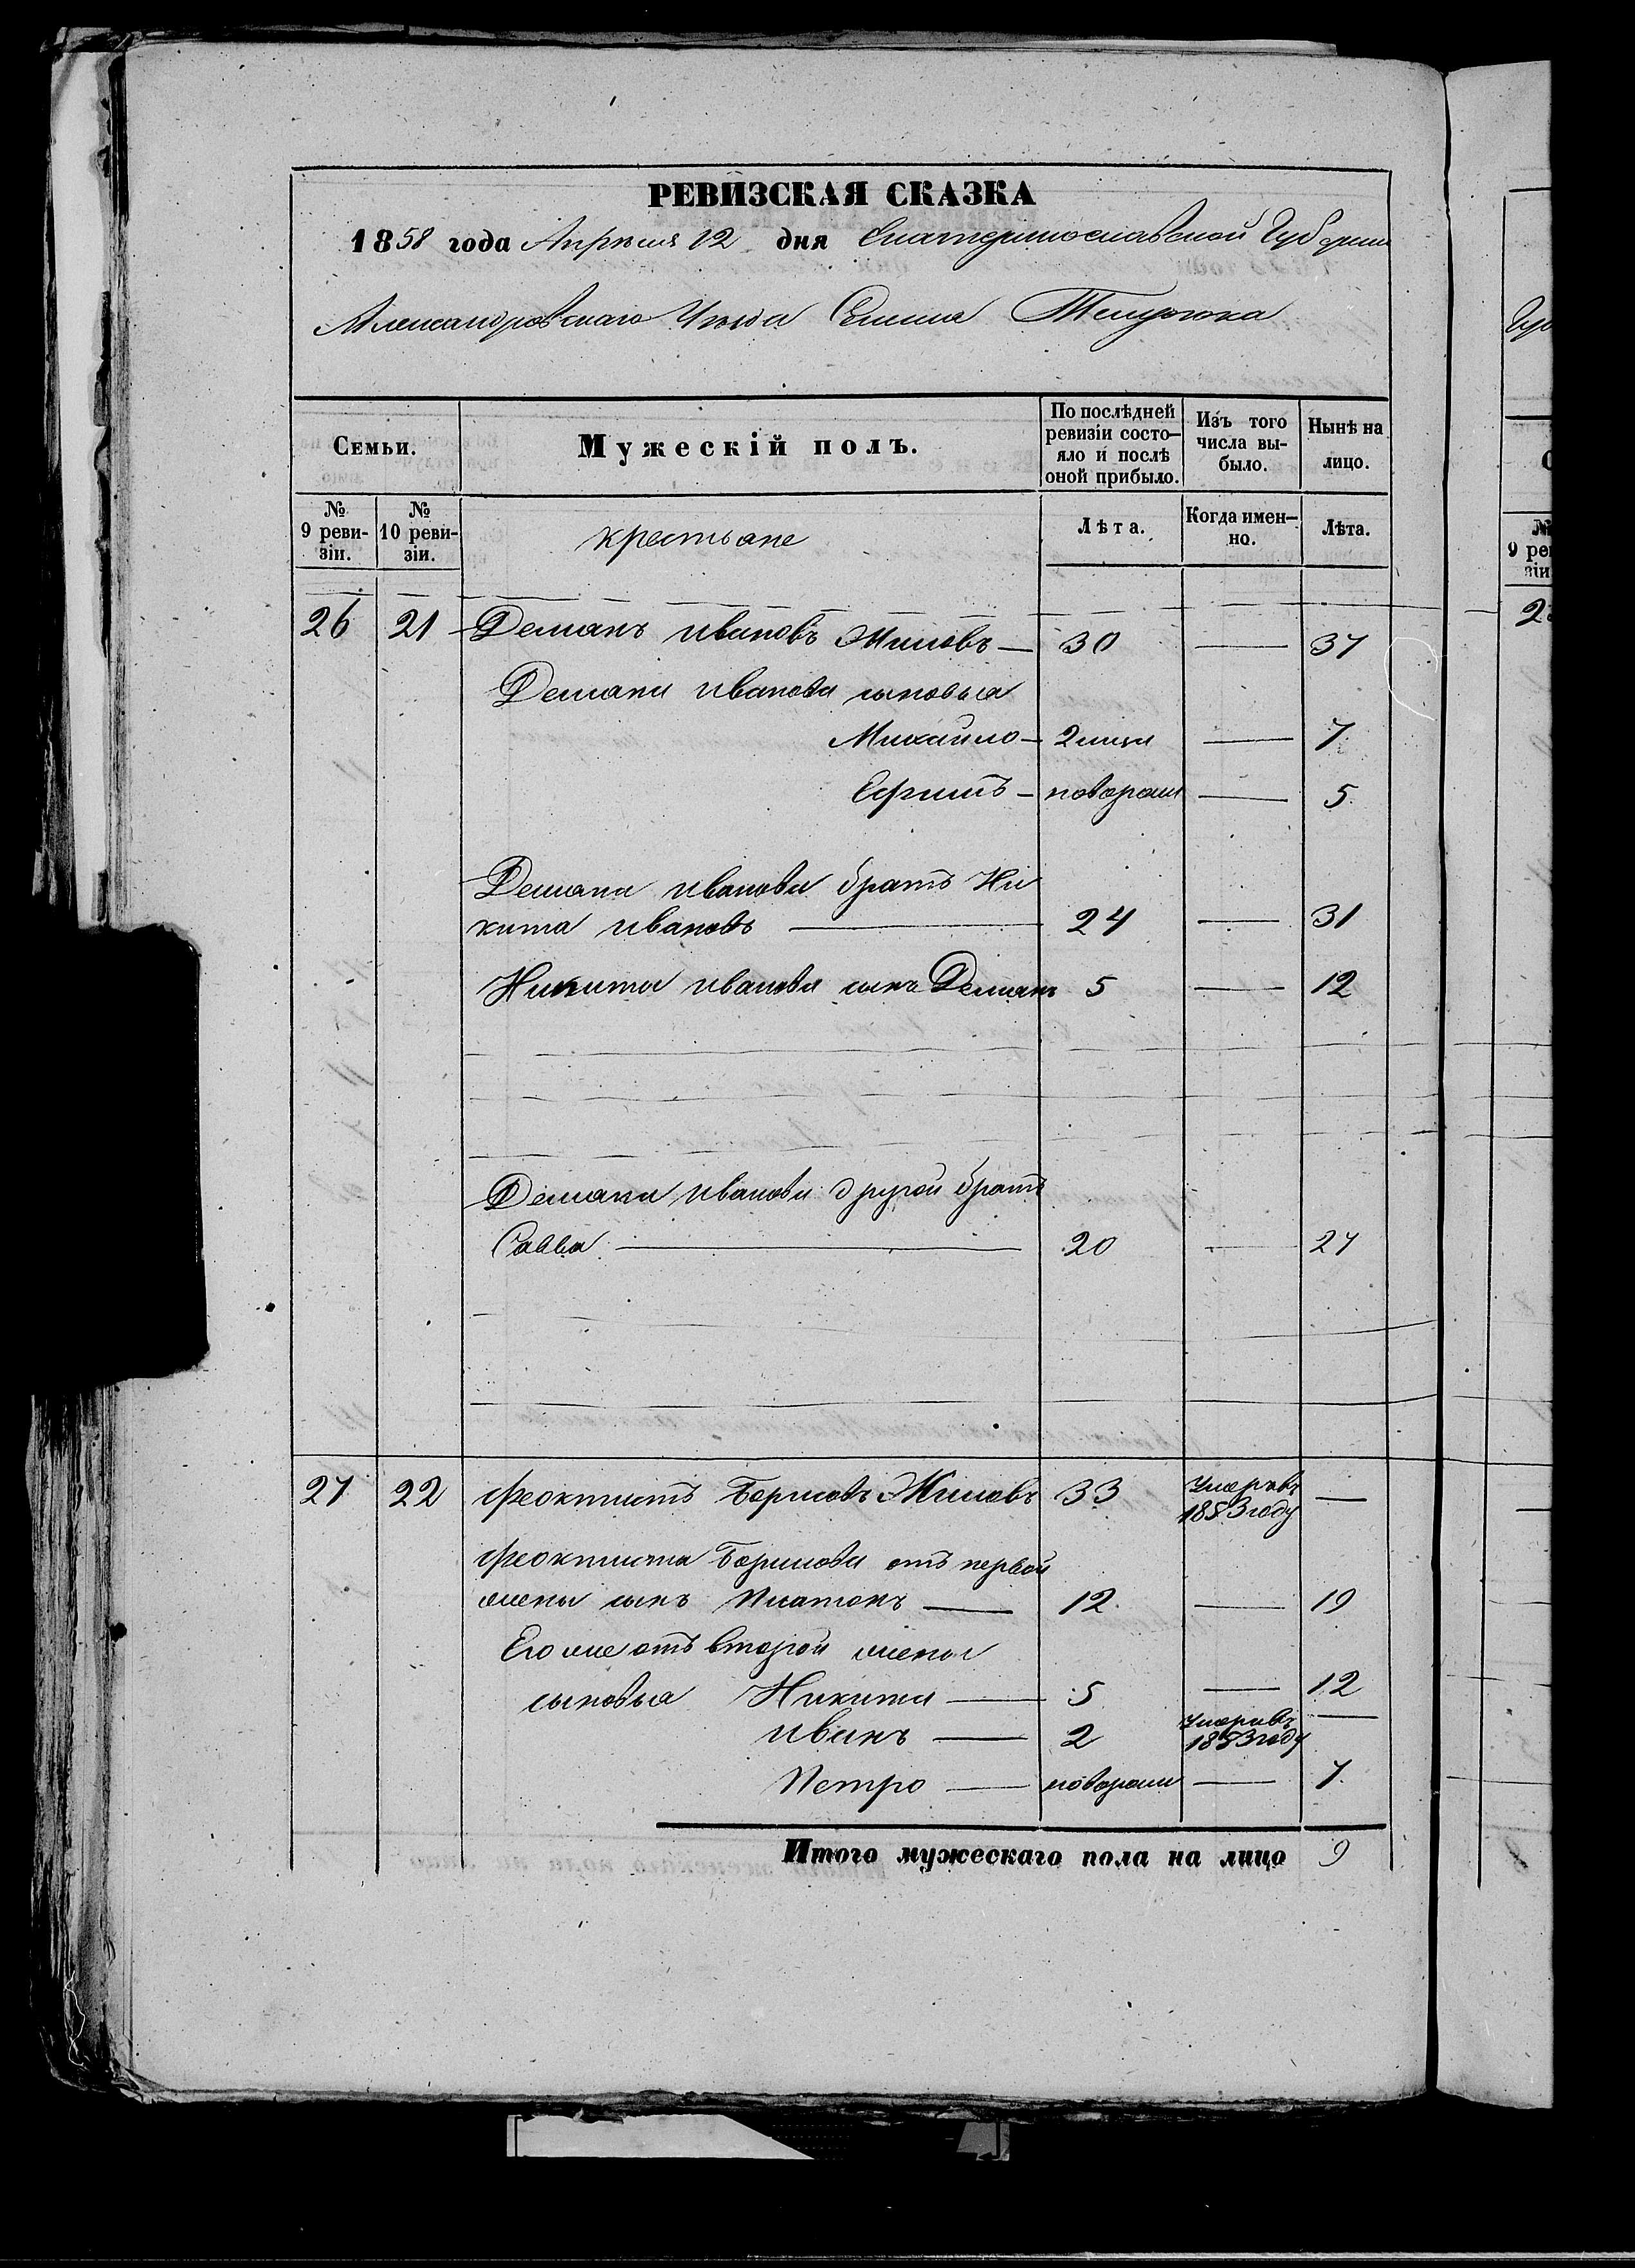 РЕВИЗСКАЯ СКАЗКА
1858 года Апреля 12 дня Екатеринославской Губернии
Александровскаго Уезда Селения Темрюка
Семьи.
Мужескій полъ.
По послѣдней ревизіи состояло и послѣ оной прибыло.
Изъ того числа выбыло.
Нынѣ на лицо.
№ 9 ревизіи.
№ 10 ревизіи.
крестьане
Лѣта.
Когда именно.
Лѣта.
26 21 Деманъ Ивановъ Жиловъ 30 — 37
Демана Иванова сыновья
Михайло 2 — 7
Ефимъ новорожн — 5
Демана Иванова братъ Ни
кита Ивановъ 24 — 31
Никита Иванова сынъ Деманъ 5 — 12
Демана Иванова другой братъ
Савва 20 — 27
27 22 Феоктистъ Борисовъ Жиловъ 33 Умеръ въ 1853 году —
Феоктиста Борисова отъ первой
жены сынъ Платонъ 12 — 19
Его же отъ второй жены
сыновья Никита 5 — 12
Иванъ 2 Умеръ въ 1853 году —
Петро новорожн — 7
Итого мужескаго пола на лицо 9